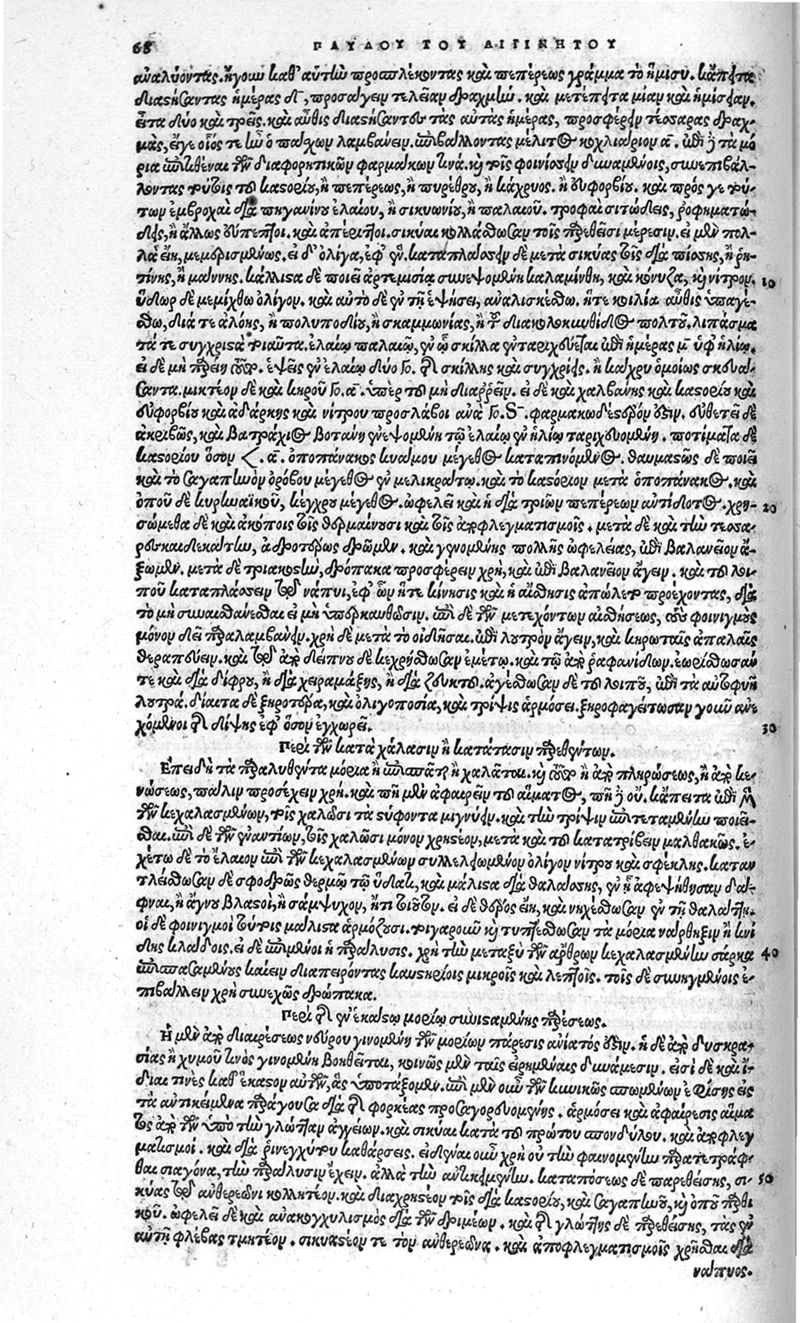 68 ΠΑΥΛΟΥ ΤΟΥ ΑΙΓΙΝΗΤΟΥ
ἀναλύοντας. ἤγουν καθ' αὑτὴν προσπλέκοντας καὶ πεπέρεως γράμμα τὸ ἥμισυ. κἄπειτα
διαστήσαντας ἡμέρας δ, προσάγειν τελείαν δραχμήν. καὶ μετέπειτα μίαν καὶ ἡμίσειαν.
εἶτα δύο καὶ τρεῖς. καὶ αὖθις διαστήσαντας τὰς αὐτὰς ἡμέρας, προσφέρειν τέσσαρας δραχ-
μὰς, εἴγε οἷός τε ὦ ὁ πάσχων λαμβάνειν. ἐπιβάλλοντας μέλιτος κοχλιάριον α. ἐπὶ δὲ τὰ μό-
ρια ἐπιτιθέναι τῶν διαφορητικῶν φαρμάκων τινά. καὶ τοῖς φοινίσσειν δυναμένοις, συνεπιβάλ-
λοντας τούτοις τοῦ καστορίου, ἢ πεπέρεως, ἢ πυρέθρου, ἢ κάχρυος. ἢ εὐφορβίου. καὶ πρός γε τού-
των ἐμβροχαὶ διὰ πηγανίνου ἐλαίου, ἢ σικυωνίου, ἢ παλαιοῦ. τροφαὶ σιτώδεις, ῥοφηματώ-
δεις, ἢ ἄλλως εὔπεπτοι. καὶ ἀπέριττοι. σικύαι κολλάσθωσαν τοῖς παρεθεῖσι μέρεσιν. εἰ μὲν πολ-
λὰ εἴη, μεμερισμένως. εἰ δ' ὀλίγα, ἐφ' ἕν. καταπλάσσειν δὲ μετὰ σικύας τοῖς διὰ πίσσης, ἢ ῥη-
τίνης, ἢ μάννης. κάλλιστα δὲ ποιεῖ ἀρτεμισία συνεψομένη καλαμίνθη, καὶ κόνυζα, καὶ νίτρον. 10
ὕδωρ δὲ μεμίχθω ὀλίγον. καὶ αὐτὸ δὲ ἐν τῇ ἑψήσει, ἀναλισκέσθω. ἥ τε κοιλία αὖθις ὑπαγέ-
σθω, διά τε ἀλόης, ἢ πολυποδίου, ἢ σκαμμωνίας, ἢ τοῦ διὰ κολοκυνθίδος πολτοῦ. λιπάσμα-
τά τε συγχρίσματα τοιαῦτα. ἐλαίῳ παλαιῷ, ἐν ᾧ σκίλλα ἐνταριχεύεται ἐπὶ ἡμέρας μ ὑφ' ἡλίῳ.
εἰ δὲ μὴ παρείη τοῦτο. ἑψεῖς ἐν ἐλαίῳ δύο τῆς σκίλλης καὶ συγχρίεις. ἢ κάχρυ ὁμοίως σκευάσ-
αντα. μικτέον δὲ καὶ κηροῦ α. ὑπὲρ τοῦ μὴ διαρρεῖν. εἰ δὲ καὶ χαλβάνης καὶ καστορίου καὶ
εὐφορβίου καὶ ἀδάρκης καὶ νίτρου προσλάβοι ἀνὰ S. φάρμακον δεύτερόν ἐστιν. εὐθετεῖ δὲ
ἀκριβῶς, καὶ βατράχιος βοτάνη ἐνεψομένη τῷ ἐλαίῳ ἐν ἡλίῳ ταριχευομένη. ποτίματα δὲ
καστορίου ὅσον α. ὀποπάνακος κυάμου μέγεθος καταπινόμενος. θαυμαστῶς δὲ ποιεῖ
καὶ τὸ σαγαπηνὸν ὀρόβου μέγεθος ἐν μελικράτῳ. καὶ τὸ καστόριον μετὰ ὀποπάνακος. καὶ
ὀποῦ δὲ κυρηναϊκοῦ, κέγχρου μέγεθος. ὠφελεῖ καὶ ἡ διὰ τριῶν πεπέρεων ἀντίδοτος. χρη- 20
σώμεθα δὲ καὶ ἀκόποις τοῖς θερμαίνουσι καὶ τοῖς ἀποφλεγματισμοῖς. μετὰ δὲ καὶ τὴν τεσσα-
ρεσκαιδεκάτην, ἁδροτέρως δρῶμεν. καὶ γενομένης πολλῆς ὠφελείας, ἐπὶ βαλανεῖον ἄ-
ξωμεν. μετὰ δὲ τριακοστὴν, δρώπακα προσφέρειν χρὴ, καὶ ἐπὶ βαλανεῖον ἄγειν. καὶ τοῦ λοι-
ποῦ καταπλάσσειν διὰ νάπυι, ἐφ' ὧν ἥ τε κίνησις καὶ ἡ αἴσθησις ἀπώλετο προέχοντας, διὰ
τὸ μὴ συναισθάνεσθαι εἰ μὴ ὑπερκαυθῶσιν. ἐπὶ δὲ τῶν μετεχόντων αἰσθήσεως, τοῦ φοινιγμοῦ
μόνον δεῖ παραλαμβάνειν. χρὴ δὲ μετὰ τὸ οἰδῆσαι. ἐπὶ λουτρὸν ἄγειν, καὶ κηρωταῖς ἁπαλαῖς
θεραπεύειν. καὶ ἀπὸ δείπνου δὲ κεχρήσθωσαν ἐμέτῳ. καὶ τῷ ἀπὸ ῥαφανίδων. ἐωρείσθωσαν
τε καὶ διὰ δίφρου, ἢ διὰ χειραμάξης, ἢ διὰ ζευκτοῦ. ἀγέσθωσαν δὲ τοῦ λοιποῦ, ἐπὶ τὰ αὐτοφυῆ
λουτρά. δίαιτα δὲ ξηροτέρα, καὶ ὀλιγοποσία, καὶ τρίψις ἁρμόσει. ξηροφαγείτωσαν γοῦν ἀνε-
χόμενοι τῆς δίψης ἐφ' ὅσον ἐγχωρεῖ. 30
Περὶ τῶν κατὰ χάλασιν ἢ κατάτασιν παρεθέντων.
Ἐπειδὴ τὰ παραλυθέντα μόρια ἢ ἐπισπᾶται ἢ χαλᾶται. καὶ τοῦτο ἢ ἀπὸ πληρώσεως, ἢ ἀπὸ κε-
νώσεως, πάλιν προσέχειν χρή. καὶ πῆ μὲν ἀφαιρεῖν τοῦ αἵματος, πῆ δὲ οὔ. κἄπειτα ἐπὶ μὲν
τῶν κεχαλασμένων, τοῖς χαλῶσι τὰ στύφοντα μιγνύειν. καὶ τὴν τρίψιν ἐπιτεταμένην ποιεῖ-
σθαι. ἐπὶ δὲ τῶν ἐναντίων, τοῖς χαλῶσι μόνον χρηστέον, μετὰ καὶ τοῦ κατατρίβειν μαλθακῶς. ἐ-
χέτω δὲ τὸ ἔλαιον ἐπὶ τῶν κεχαλασμένων συλλελειωμένον ὀλίγον νίτρου καὶ σφέκλης. καταν-
τλείσθωσαν δὲ σφοδρῶς θερμῷ τῷ ὕδατι, καὶ μάλιστα διὰ θαλάσσης, ἐν ᾗ ἀφεψήθησαν δάφ-
ναι, ἢ ἄγνου βλαστοὶ, ἢ σάμψυχον, ἤ τι τοιοῦτον. εἰ δὲ θέρος εἴη, καὶ νηχέσθωσαν ἐν τῇ θαλάττῃ.
οἱ δὲ φοινιγμοὶ τούτοις μάλιστα ἁρμόζουσι. τυπτέσθωσαν τὰ μόρια νάρθηξιν ἢ κνί-
δης κλάδοις. εἰ δὲ ἐπιμένοι ἡ παράλυσις. χρὴ τὴν μεταξὺ τῶν ἄρθρων κεχαλασμένην σάρκα 40
ἐπισπασαμένους καίειν διαπείροντας καυστηρίοις μικροῖς καὶ λεπτοῖς. τοῖς δὲ συνηγμένοις ἐ-
πιβάλλειν χρὴ συνεχῶς δρώπακα.
Περὶ τῆς ἐν ἑκάστῳ μορίῳ συνισταμένης παρέσεως.
Ἡ μὲν ἀπὸ διαιρέσεως νεύρου γινομένη τῶν μορίων πάρεσις ἀνίατός ἐστιν. ἡ δὲ ἀπὸ δυσκρα-
σίας ἢ χυμοῦ τινὸς γινομένη βοηθεῖται, κοινῶς μὲν ταῖς εἰρημέναις δυνάμεσιν. εἰσὶ δὲ καὶ ἴ-
διαί τινες καθ' ἕκαστον αὐτῶν, ἃς ὑποτάξομεν. ἐπὶ μὲν οὖν τῶν κυνικῶς σπωμένων
τὰ ἀντικείμενα παράγουσα διὰ τῆς φορβέας προσαγορευομένης. ἁρμόσει καὶ ἀφαίρεσις αἵμα-
τος ἀπὸ τῶν ὑπὸ τὴν γλῶτταν ἀγγείων. καὶ σικύαι κατὰ τοῦ πρώτου σπονδύλου. καὶ ἀποφλεγ-
ματισμοί. καὶ διὰ ῥινεγχύτου καθάρσεις. εἰδέναι οὖν χρὴ οὐ τὴν φαινομένην παρατετράφ-
θαι σιαγόνα, τὴν παράλυσιν ἔχειν. ἀλλὰ τὴν ἀντικειμένην. καταπόσεως δὲ παρεθείσης, σι- 50
κύας τῷ ἀνθερεῶνι κολλητέον. καὶ διαχρηστέον τοῖς διὰ καστορίου, καὶ σαγαπηνοῦ, καὶ ὀποῦ παρθι-
κοῦ. ὠφελεῖ δὲ καὶ ἀνακογχυλισμὸς διὰ τῶν δριμέων. καὶ τῆς γλώττης δὲ παρεθείσης, τὰς ἐν
αὐτῇ φλέβας τμητέον. σικυαστέον τε τὸν ἀνθερεῶνα. καὶ ἀποφλεγματισμοῖς χρῆσθαι διὰ
νάπυος.